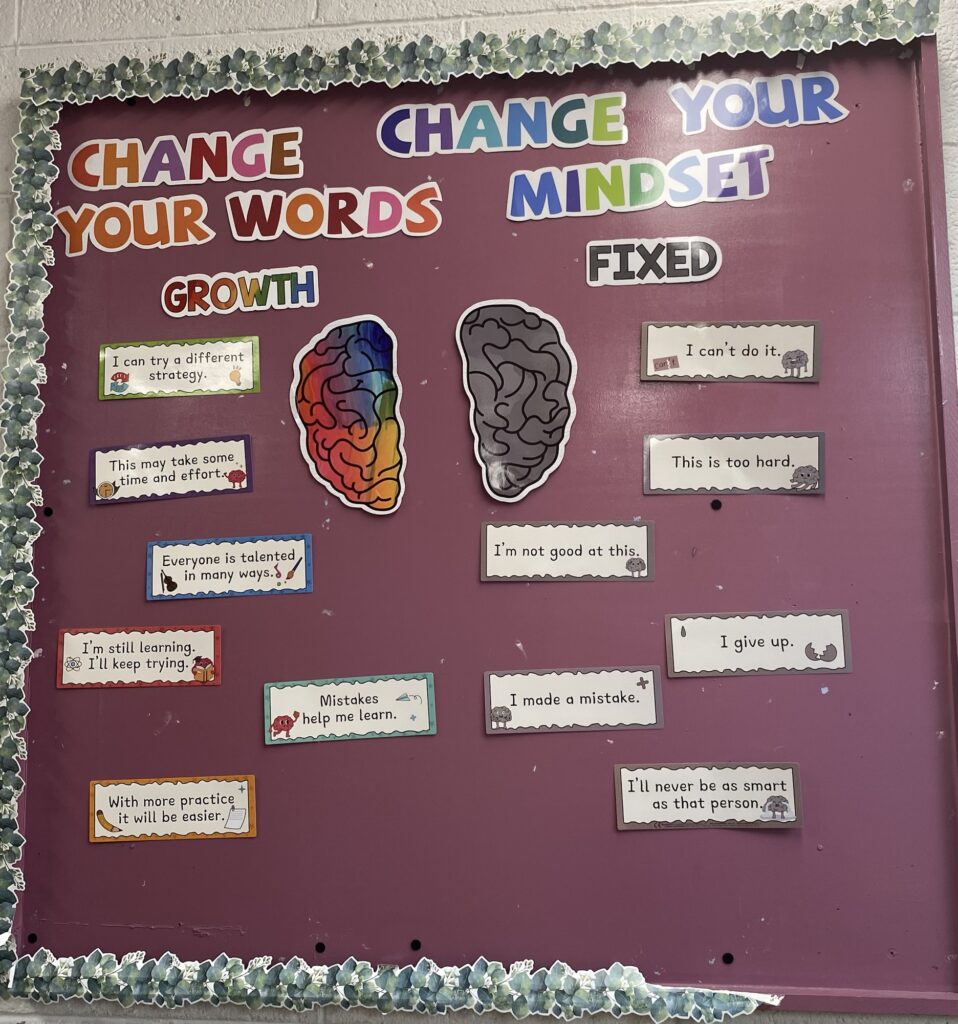 CHANGE
YOUR WORDS
CHANGE YOUR
MINDSET
GROWTH
FIXED
I can try a different
strategy.
This may take some
time and effort.
Everyone is talented
in many ways.
I'm still learning.
I'll keep trying.
Mistakes
help me learn.
With more practice
it will be easier.
I can't do it.
can't
This is too hard.
I'm not good at this.
I give up.
I made a mistake.
I'll never be as smart
as that person.